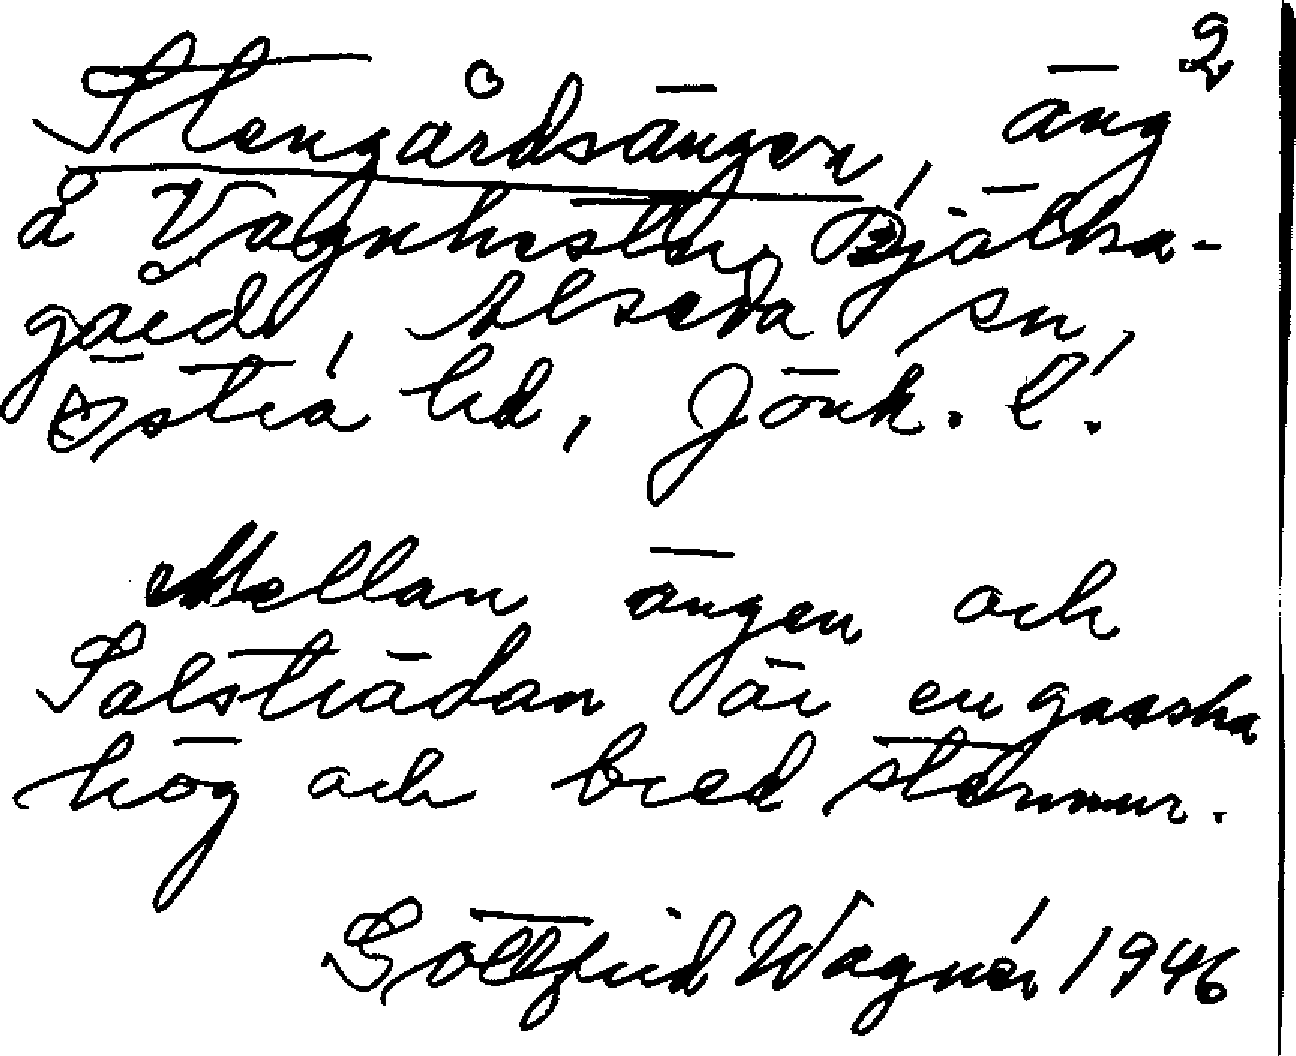 2
Stengårdsängen, äng
å Vagnhester, Bjälka-
gård, Alseda sn,
Östra hd, Jönk. l.
Mellan ängen och
Salsträdan är en ganska
hög och bred stenmur.
Gottfrid Wagnér 1946